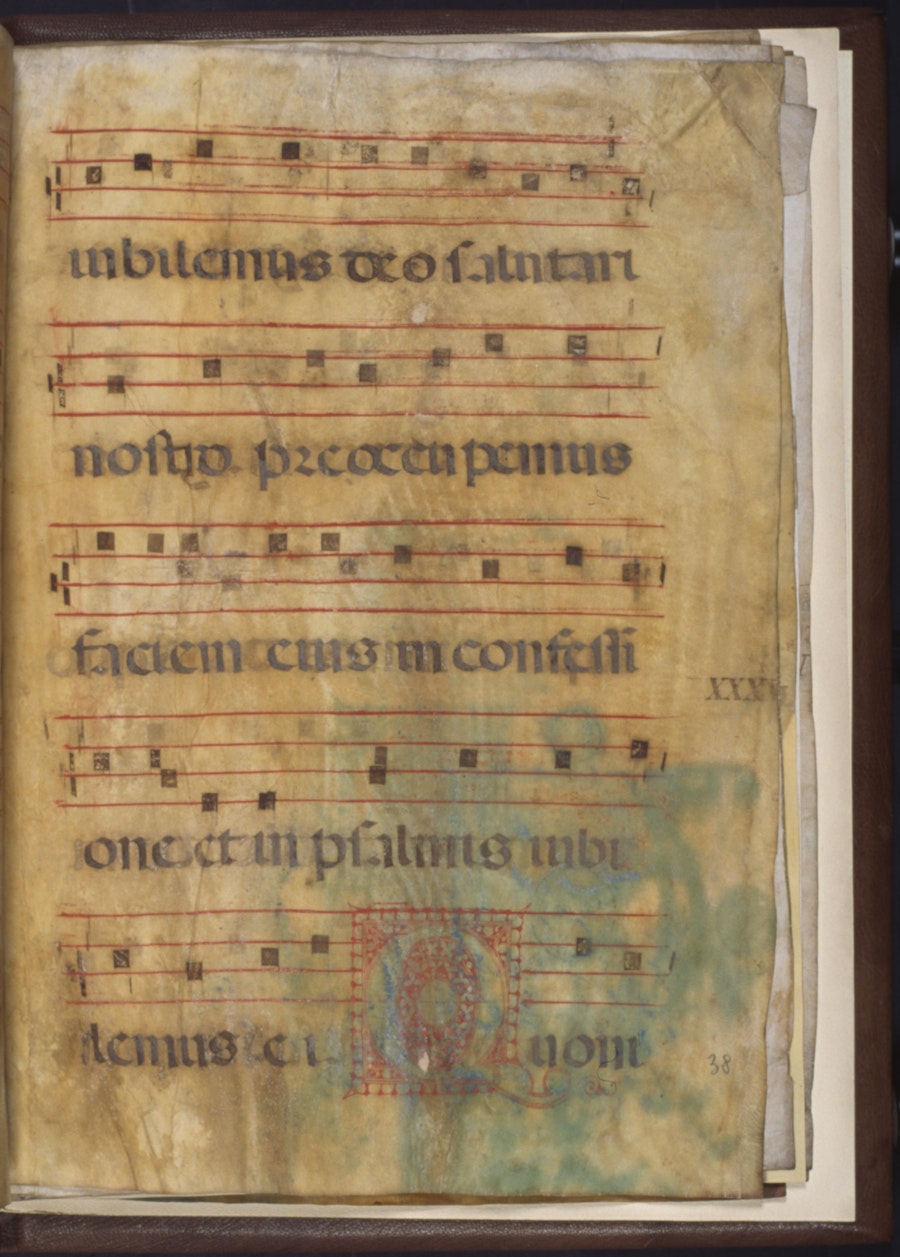 iubilemus deo salutari
nostro preoccupemus
faciem eius in confessi
one et in psalmis iubi
lemus ei Quoni
38